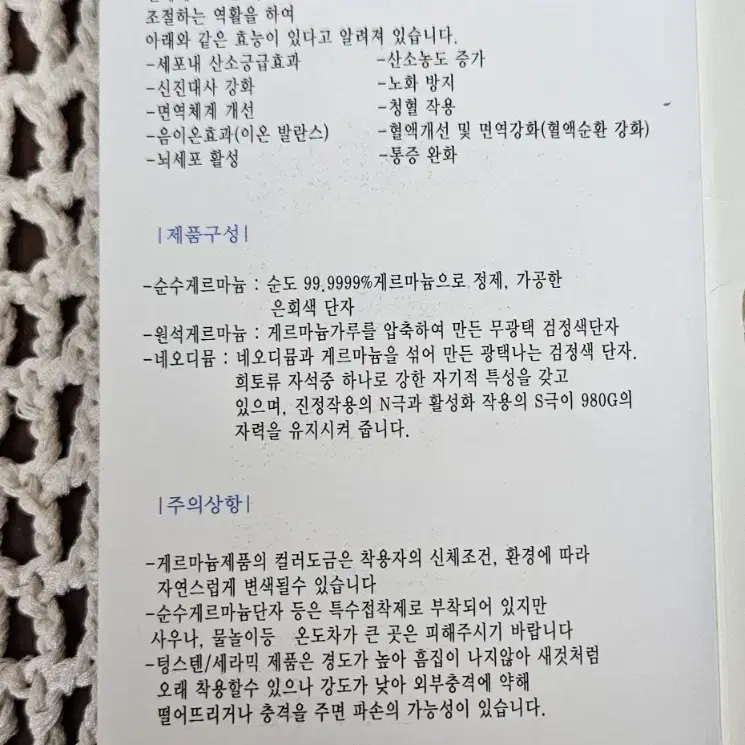 조절하는 역활을 하여
아래와 같은 효능이 있다고 알려져 있습니다.
-세포내 산소긍급효과 -산소농도 증가
-신진대사 강화 -노화 방지
-면역체계 개선 -청혈 작용
-음이온효과(이온 발란스) -혈액개선 및 면역강화(혈액순환 강화)
-뇌세포 활성 -통증 완화
|제품구성|
-순수게르마늄 : 순도 99.9999%게르마늄으로 정제, 가공한
은회색 단자
-원석게르마늄 : 게르마늄가루를 압축하여 만든 무광택 검정색단자
-네오디뮴 : 네오디뮴과 게르마늄을 섞어 만든 광택나는 검정색 단자.
희토류 자석중 하나로 강한 자기적 특성을 갖고
있으며, 진정작용의 N극과 활성화 작용의 S극이 980G의
자력을 유지시켜 줍니다.
|주의상항|
-게르마늄제품의 컬러도금은 착용자의 신체조건, 환경에 따라
자연스럽게 변색될수 있습니다
-순수게르마늄단자 등은 특수접착제로 부착되어 있지만
사우나, 물놀이등 온도차가 큰 곳은 피해주시기 바랍니다
-텅스텐/세라믹 제품은 경도가 높아 흠집이 나지않아 새것처럼
오래 착용할수 있으나 강도가 낮아 외부충격에 약해
떨어뜨리거나 충격을 주면 파손의 가능성이 있습니다.